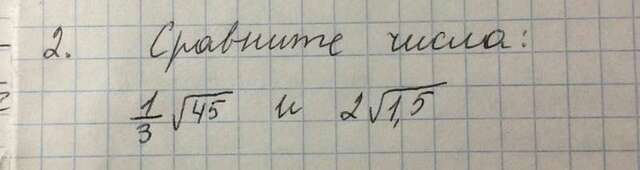 2. Сравните числа:
1/3 √45 и 2√1,5